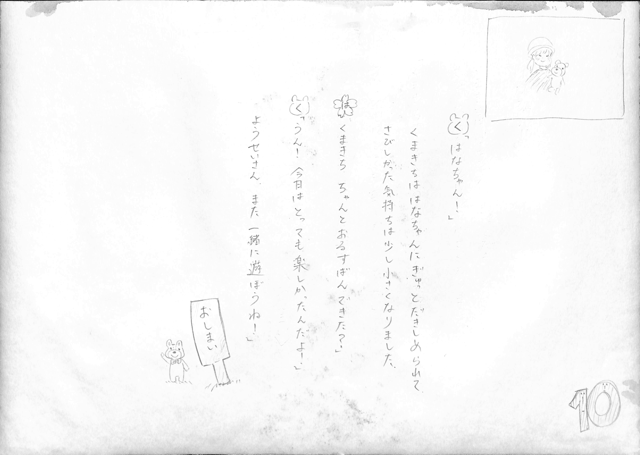 く「はなちゃん！」
くまきちは はなちゃんに ぎゅっと だきしめられて
さびしかった気持ちは少し小さくなりました。
は「くまきち ちゃんと おるすばん できた？」
く「うん！今日は とっても楽しかったんだよ！」
ようせいさん、また 一緒に 遊ぼうね！」
おしまい
10